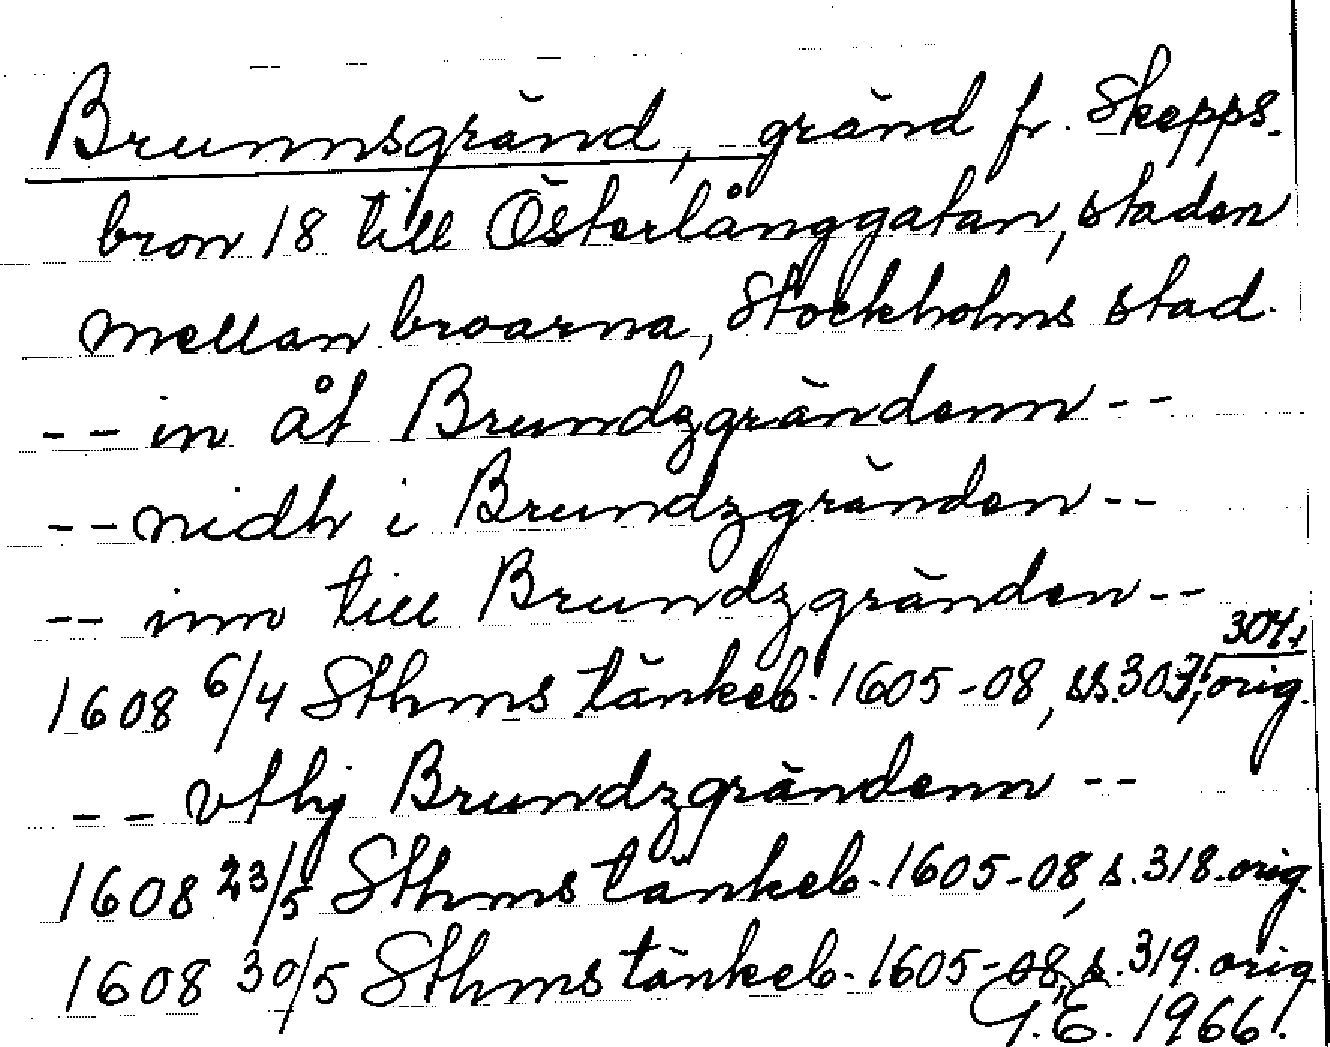 Brunnsgränd, gränd fr. Skepps-
bron 18 till Österlånggatan, staden
mellan broarna, Stockholms stad.
-- in åt Brundzgrändenn --
-- nidh i Brundzgränden --
-- inn till Brundzgränden --
304,
1608 6/4 Sthms tänkeb. 1605-08, ss. 303, orig.
-- vthj Brundzgrändenn --
1608 23/5 Sthms tänkeb. 1605-08, s. 318. orig.
1608 30/5 Sthms tänkeb. 1605-08, s. 319. orig
G.E. 1966.